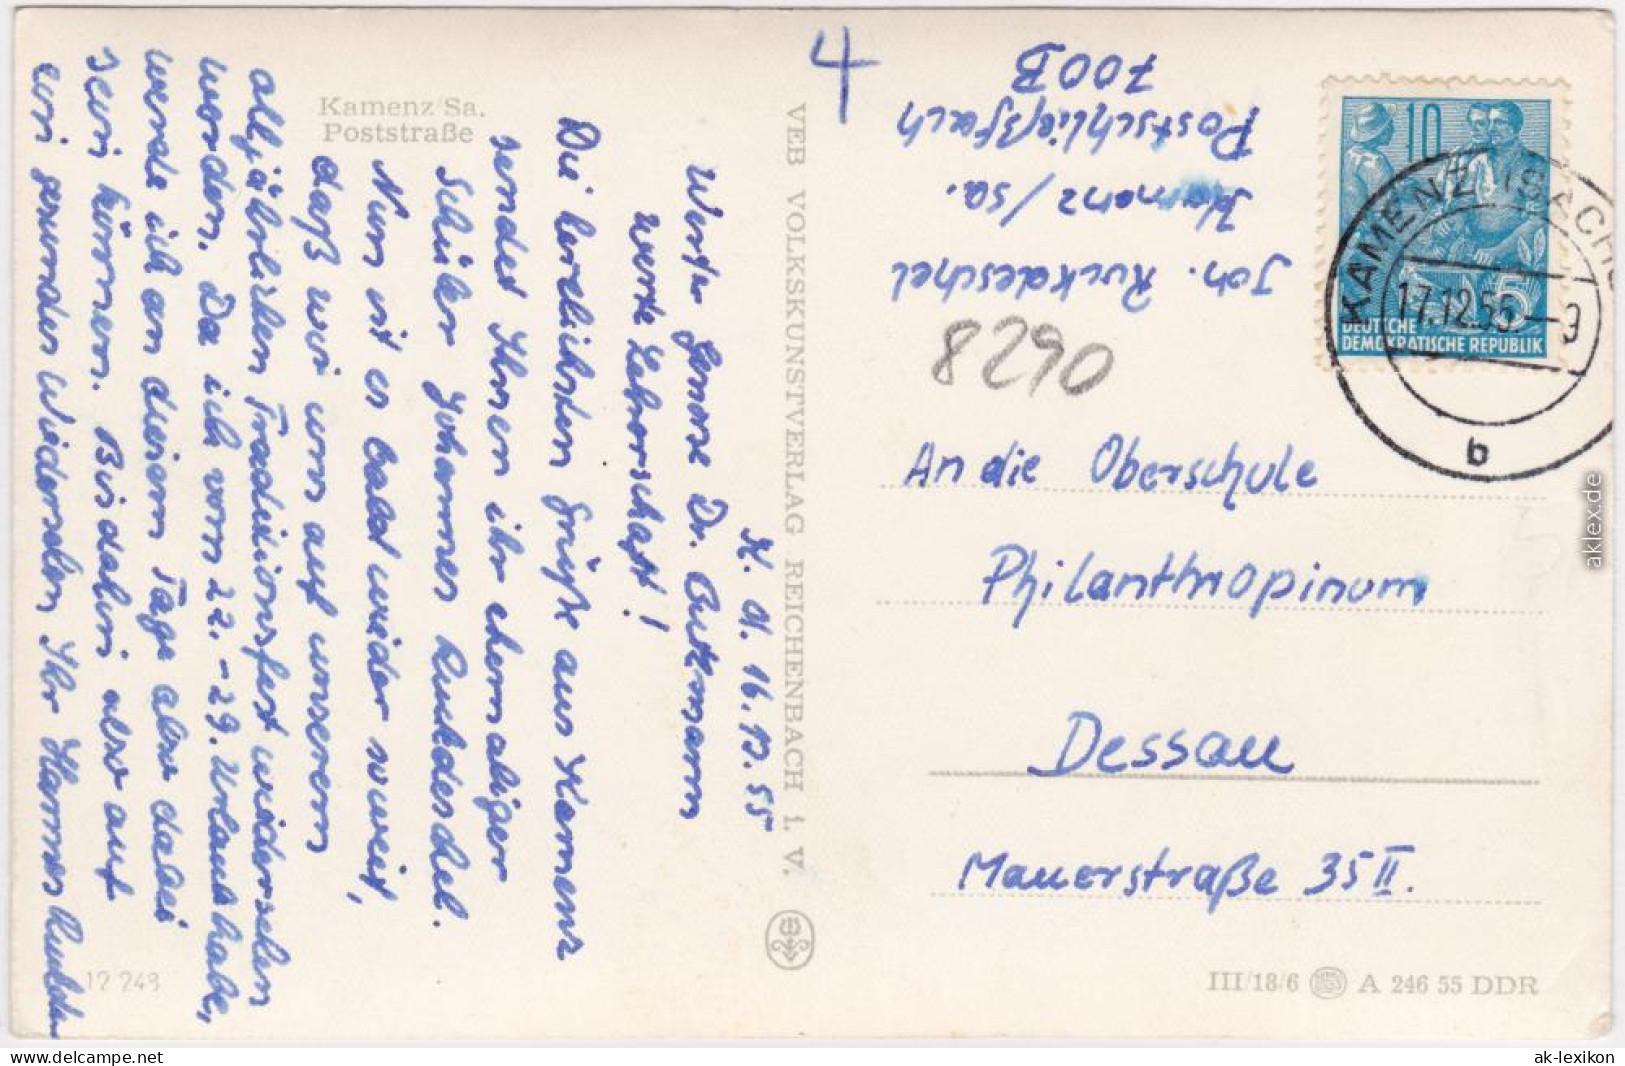 Kamenz/Sa.
Poststraße
K. d. 16.12.55
Werter Genosse Dr. Butzmann
werte Lehrerschaft!
Die herzlichsten Grüße aus Kamenz
sendet Ihnen ihr ehemaliger
Schüler Johannes Ruckdeschel.
Nun ist es bald wieder soweit,
daß wir uns auf unserem
alljährlichen Traditionsfest wiedersehen
werden. Da ich vom 22.-29. Urlaub habe,
werde ich an diesem Tage also dabei
sein können. Bis dahin also auf
ein gesundes Wiedersehen Ihr Hannes
12 249
VEB VOLKSKUNSTVERLAG REICHENBACH I. V.
4
Joh. Ruckdeschel
Kamenz/Sa.
Postschließfach
700B
10
15
DEUTSCHE
DEMOKRATISCHE REPUBLIK
KAMENZ (SACHS
17.12.55
b
8290
An die Oberschule
Philanthropinum
Dessau
Mauerstraße 35 II.
III/18/6 A 246 55 DDR
aklex.de
www.delcampe.net
tweelingen-shop
ak-lexikon